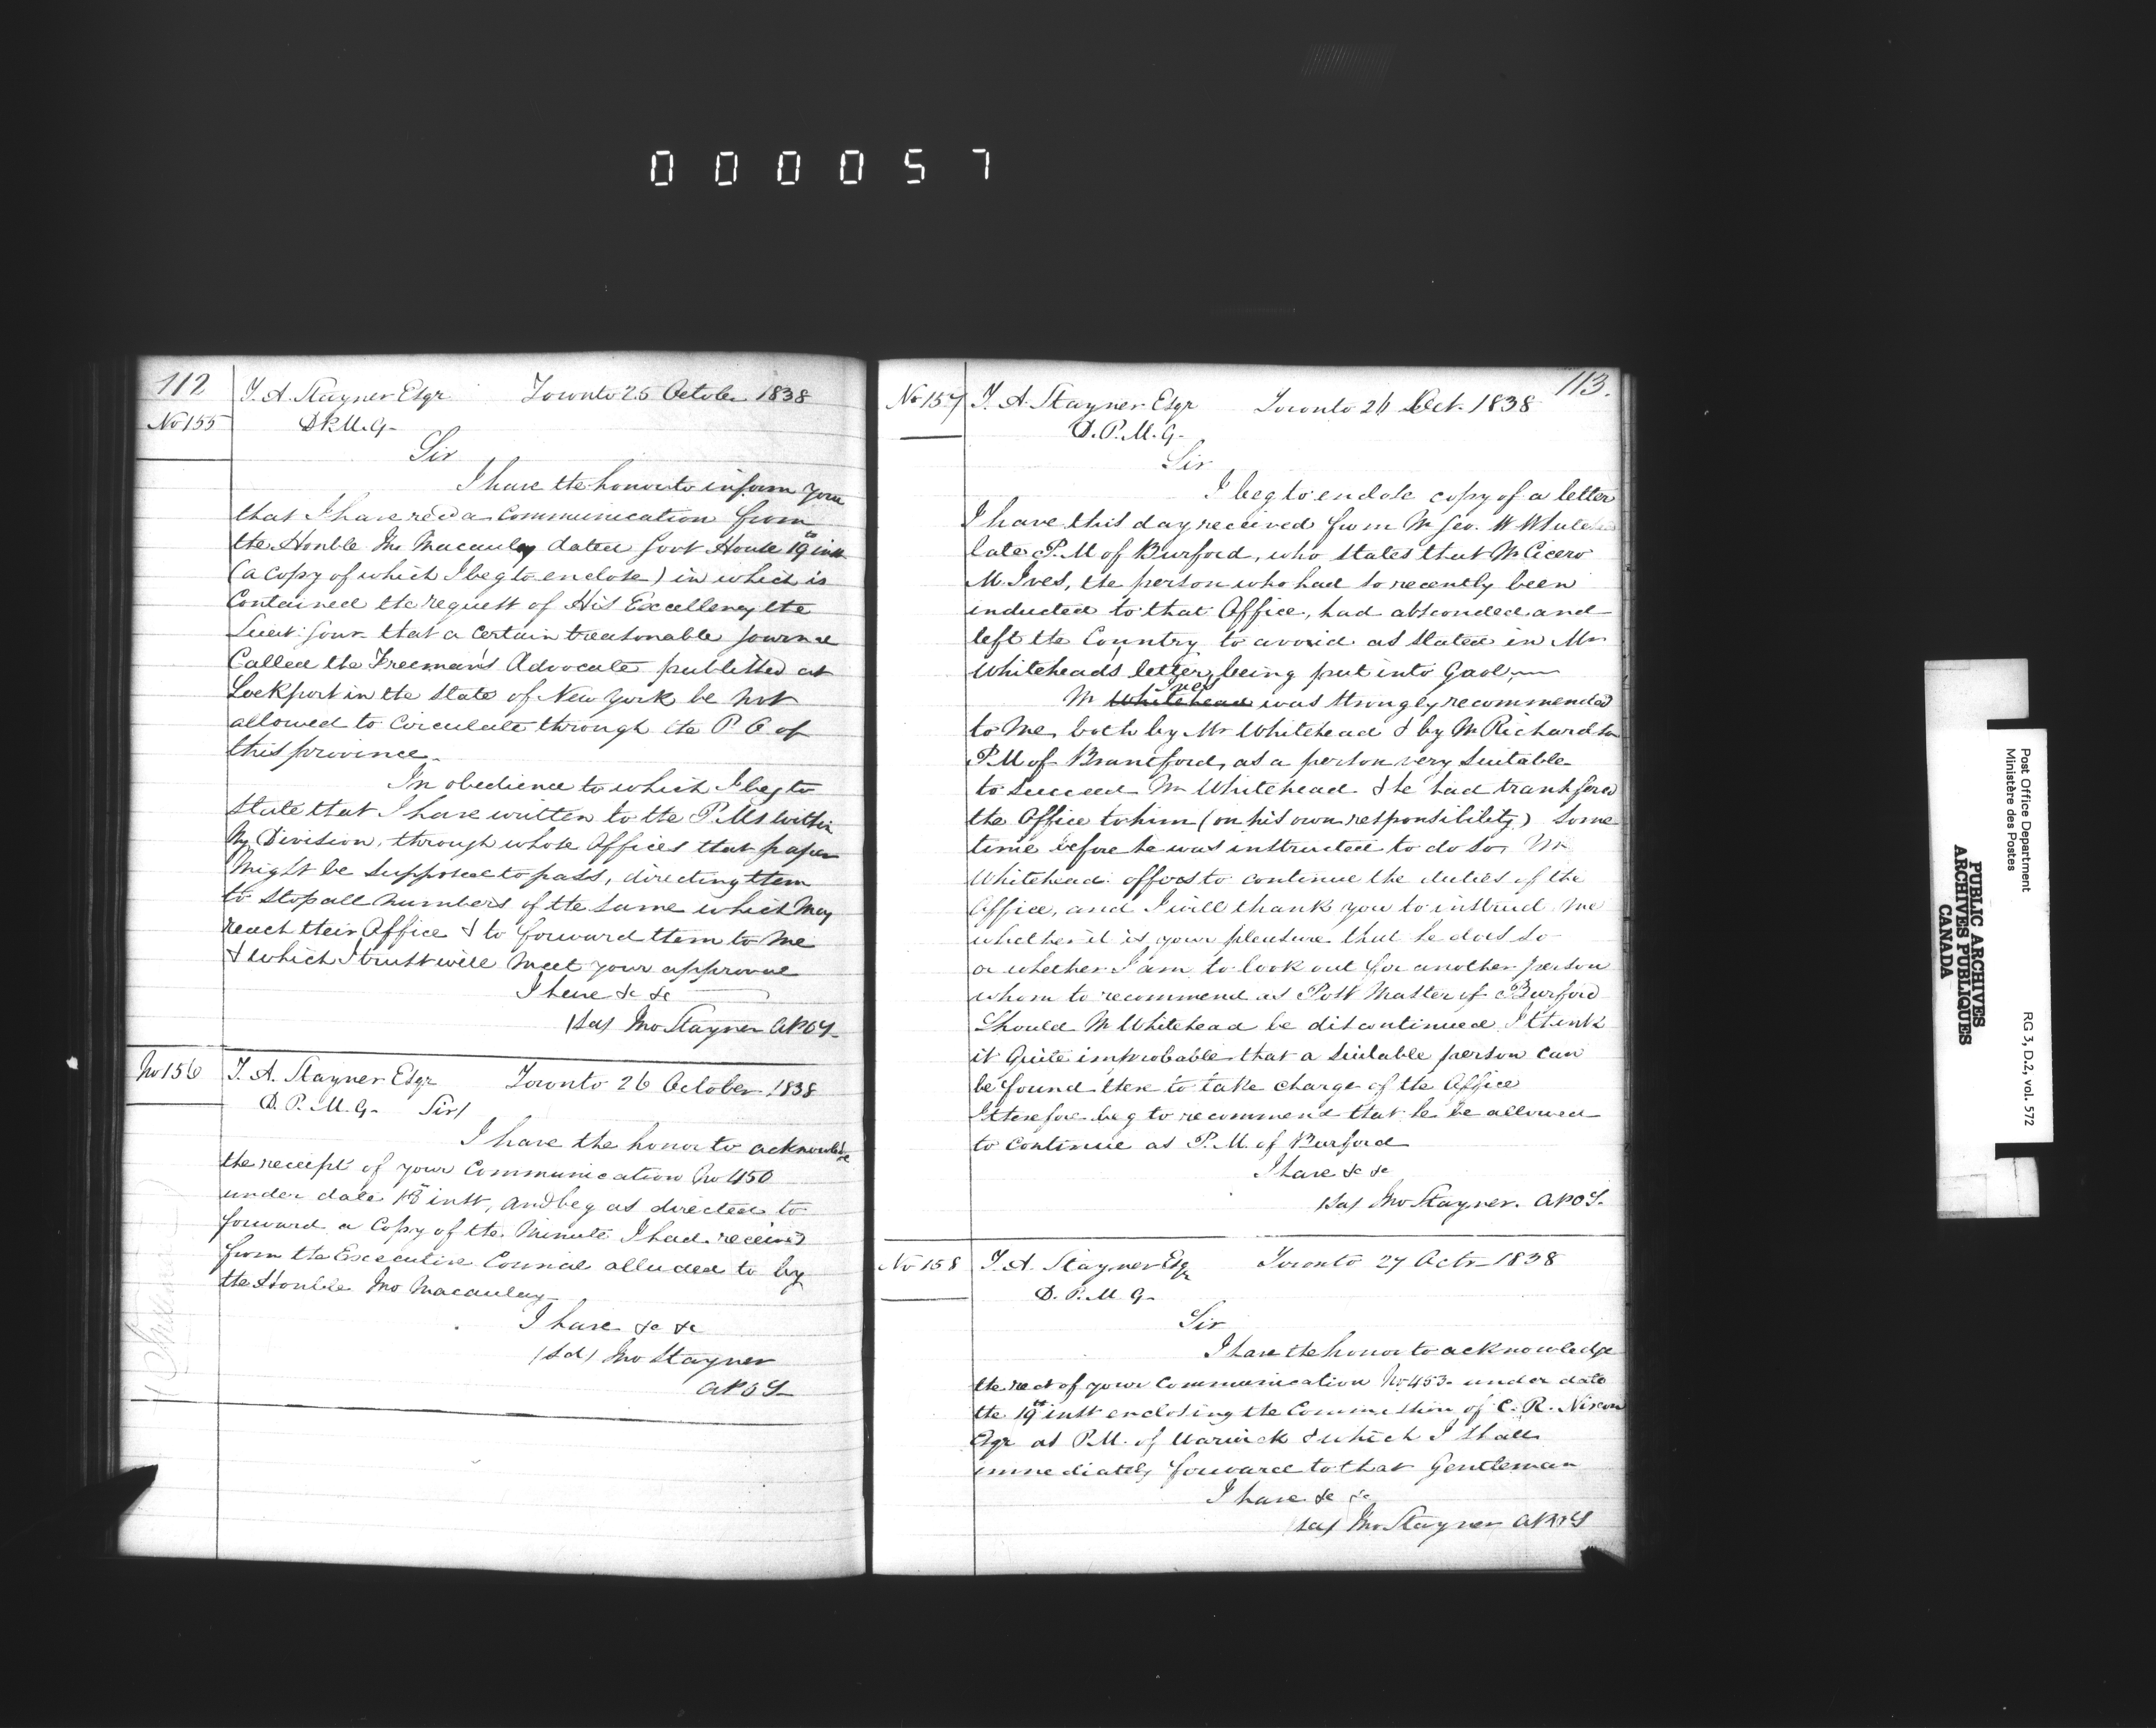 000057
112
No 155
T. A. Stayner Esqr Toronto 25 October 1838
D.P.M.G-
Sir
I have the honor to inform you
that I have recd a Communication from
the Honble Jno Macaulay dated Govt House 19th inst
(a copy of which I beg to enclose) in which is
Contained the request of His Excellency the
Lieut: Govr that a certain treasonable Journal
Called the Freeman's Advocate published at
Lockport in the State of New York be not
allowed to circulate through the P. O of
this province.
In obedience to which I beg to
state that I have written to the P. Ms within
My Division, through whose Offices that paper
Might be supposed to pass, directing them
to stop all numbers of the same which May
reach their Office & to forward them to Me
& which I trust will meet your approval
I have &c &c
(Sd) Jno Stayner APOS-
No 156
T. A. Stayner Esqr Toronto 26 October 1838
D. P. M. G- Sir/
I have the honor to acknowledge
the receipt of your Communication No 450
under date inst, and beg as directed to
forward a Copy of the Minute I had received
from the Executive Council alluded to by
the Honble Jno Macaulay-
I have &c &c
(Sd) Jno Stayner
APOS-
113.
No 157
T. A. Stayner Esqr Toronto 26 Oct. 1838
D. P. M. G-
Sir
I beg to enclose copy of a letter
I have this day received from Mr Geo. W Whitehead
late P.M of Burford, who states that Mr Cicero
M. Ives, the person who had so recently been
inducted to that Office, had absconded and
left the Country to avoid as stated in Mr
Whitehead's letter, being put into Gaol,—
Ives
Mr Whitehead was strongly recommended
to Me, both by Mr Whitehead & by Mr Richardson
P.M of Brantford, as a person very suitable
to succeed Mr Whitehead & he had transfered
the Office to him (on his own responsibility) some
time before he was instructed to do so, Mr
Whitehead offers to continue the duties of the
Office, and I will thank you to instruct Me
whether it is your pleasure that he does so
or whether I am to look out for another person
whom to recommend as Post Master of Burford
Should Mr Whitehead be discontinued I think
it Quite improbable that a Suitable person can
be found there to take charge of the Office
I therefore beg to recommend that he be allowed
to Continue as P.M. of Burford
I have &c &c
(Sd) Jno Stayner. APOS.
No 158
T. A. Stayner Esqr Toronto 27 Octr- 1838
D. P. M G-
Sir
I have the honor to acknowledge
the rect of your Communication No 453. under date
the 19th inst enclosing the Commission of C. R. Nixon
Esqr as P.M. of Warwick & which I shall
immediately forward to that Gentleman
I have &c &c
(Sd) Jno Stayner APOS
Post Office Department
Ministère des Postes
RG 3, D.2, vol. 572
PUBLIC ARCHIVES
ARCHIVES PUBLIQUES
CANADA